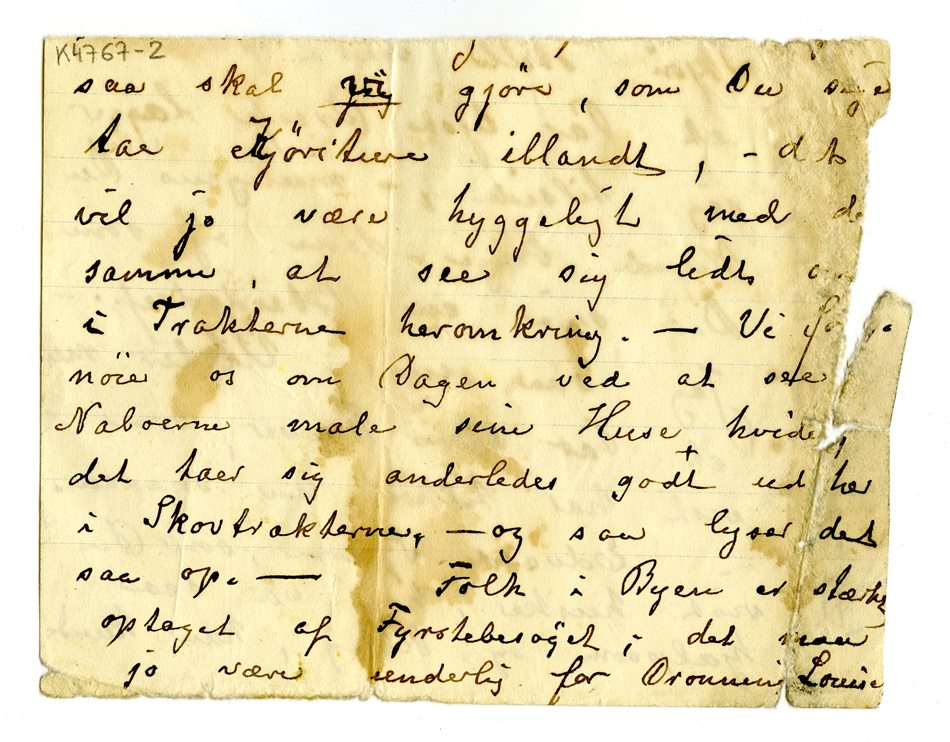 K4767-2
saa skal vi gjöre, som Du sige
tae Kjöreture iblandt, - det
vil jo være hyggeligt med de
samme, at see sig lidt om
i Trakterne heromkring. — Vi for
nöie os om Dagen ved at see
Naboerne male sine Huse hvide,
det taer sig anderledes godt ud her
i Skovtrakterne, — og saa lyser det
saa op. — Folk i Byen er stærkt
optaget af Fyrstebesöget; det maa
jo være underlig for Dronning Louise